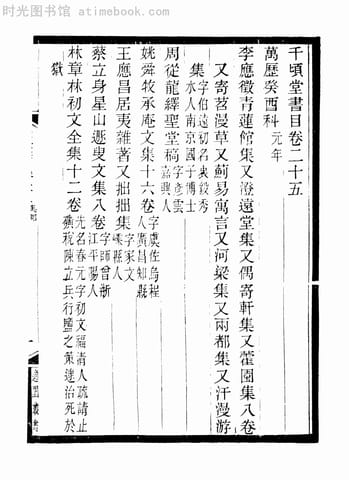 时光图书馆 - atimebook.com
千頃堂書目卷二十五
萬歷癸酉科元年
李應徵青蓮館集又澄遠堂集又偶寄軒集又藿園集八卷
又寄苕漫草又薊易寓言又河梁集又兩都集又汗漫游
集字伯遠初名
水人南京國子博士
周從龍繹聖堂稿字彥雲
嘉興人
姚舜牧承庵文集十六卷字虞佐烏程
人廣昌知縣
王應昌居夷雜著又拙拙集字家文
嵊縣人
蔡立身星山遯叟文集八卷字師曾浙
江平陽人
林章林初文全集十二卷先名春元字初文福清人疏請止
礦稅陳立兵行鹽之策逮治死於
獄